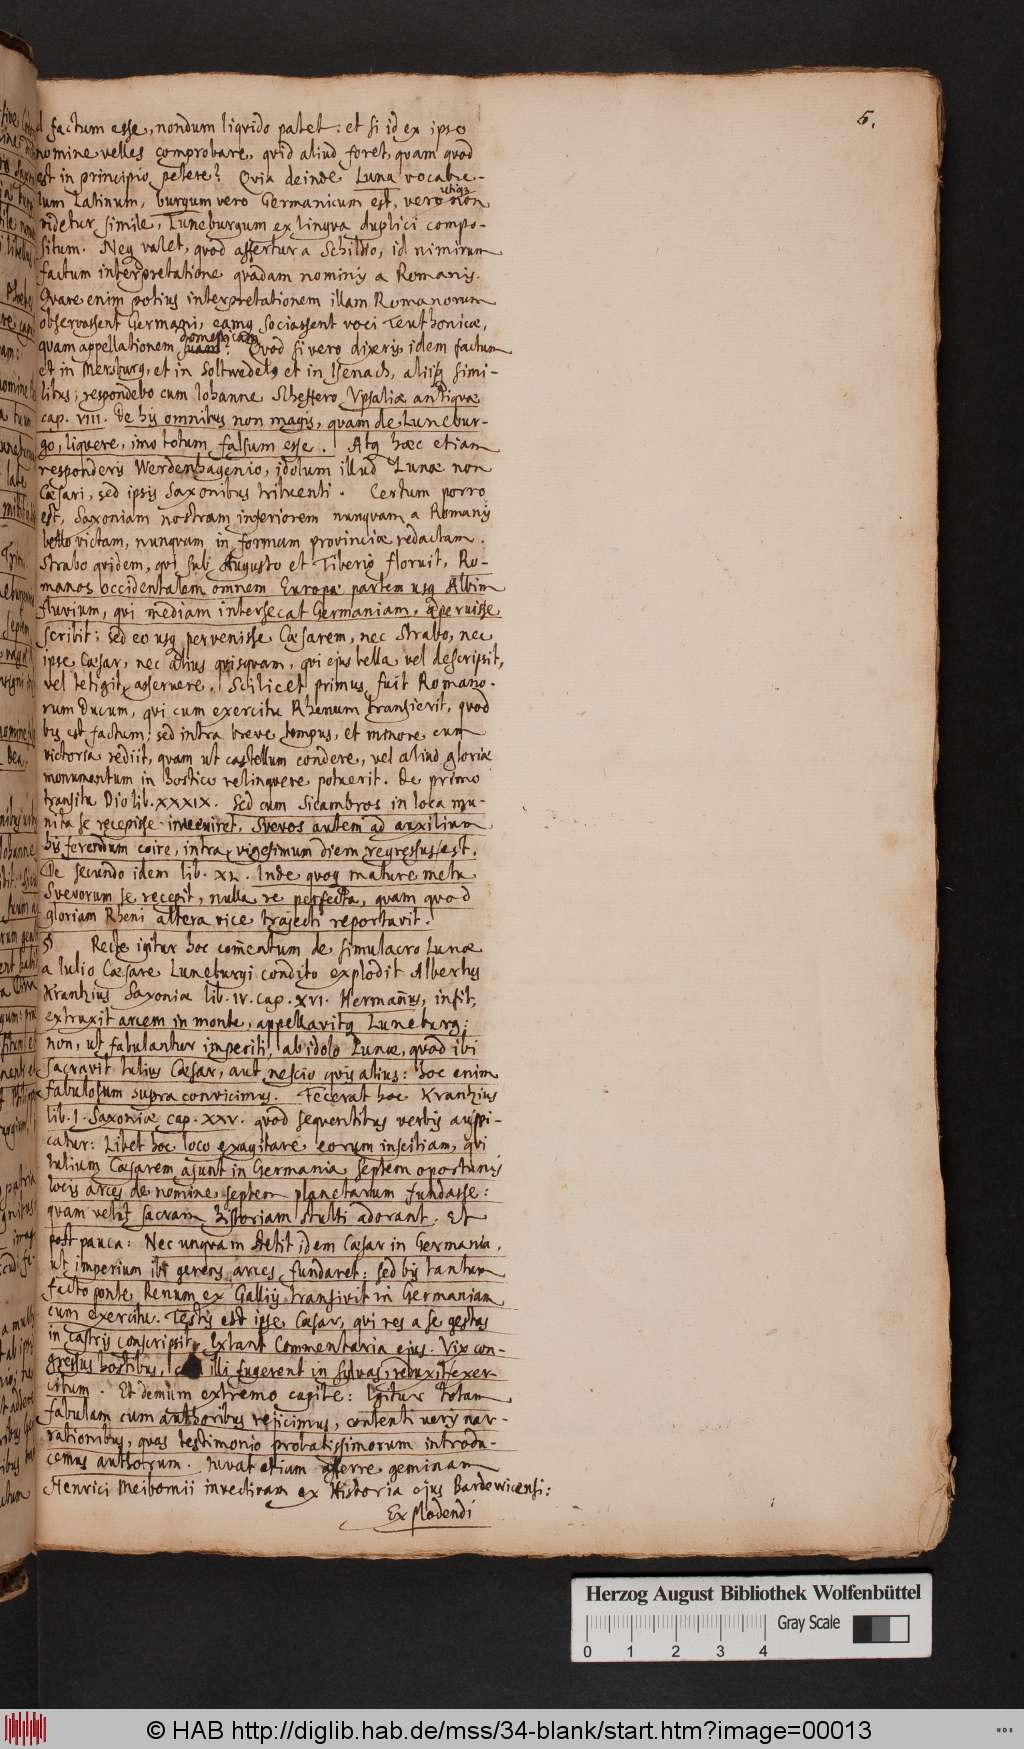 5.
factum esse, nondum liqvido patet: et si id ex ipso
nomine velles comprobare, qvid aliud foret, qvam qvod
est in principio petere? Qvia deinde Luna vocabu-
lum Latinum, burgum vero Germanicum est, vero utiqꝫ non
videtur simile, Luneburgum ex lingva duplici compo-
situm. Neq valet, qvod affertur a Schildio, id nimirum
factum interpretatione qvadam nominis a Romanis.
Qvare enim potius interpretationem illam Romanorum
observassent Germani, eamq sociassent voci Teuthonicæ,
qvam appellationem domesticam suam? Qvod si vero dixeris, idem factum
et in Mersburg, et in Soltwedel, et in Isenach, aliisq simi-
libus; respondebo cum Iohanne Scheffero Vpsaliæ antiqvæ
cap. VIII. De his omnibus non magis, qvam de Lunebur-
go, liqvere, imo totum falsum esse. Atq hæc etiam
responderis Werdenhagenio, idolum illud Lunæ non
Cæsari, sed ipsis Saxonibus tribuenti. Certum porro
est, Saxoniam nostram inferiorem nunqvam a Romanis
bello victam, nunqvam in formam provinciæ redactam.
Strabo qvidem, qvi sub Augusto et Tiberio floruit, Ro-
manos occidentalem omnem Europæ partem usq Albim
fluvium, qvi mediam intersecat Germaniam, aperuisse
scribit; sed eo usq pervenisse Cæsarem, nec Strabo, nec
ipse Cæsar, nec alius qvisqvam, qvi ejus bella vel descripsit,
vel tetigit, asseruere. Scilicet primus fuit Romano-
rum Ducum, qvi cum exercitu Rhenum transierit, qvod
bis est factum; sed intra breve tempus, et minore cum
victoria rediit, qvam ut castellum condere, vel aliud gloriæ
monumentum in hostico relinqvere potuerit. De primo
transitu Dio lib. XXXIX. Sed cum Sicambros in loca mu-
nita se recepisse inveniret, Svevos autem ad auxilium
his ferendum coire, intra vigesimum diem regressus est.
De secundo idem lib. XL. Inde qvoq mature metu
Svevorum se recepit, nulla re perfecta, qvam qvod
gloriam Rheni altera vice trajecti reportavit.
Recte igitur hoc com̄entum de simulacro Lunæ
a Iulio Cæsare Luneburgi condito explodit Albertus
Krantzius Saxoniæ lib. IV. cap. XVI. Herman̄us, infit,
extruxit arcem in monte, appellavitq Luneburg;
non, ut fabulantur imperiti, ab idolo Lunæ, qvod ibi
sacravit Iulius Cæsar, aut nescio qvis alius: hoc enim
fabulosum supra convicimus. Fecerat hoc Krantzius
lib. I. Saxoniæ cap. XXV. qvod seqventibus verbis auspi-
catur: Libet hoc loco exagitare eorum inscitiam, qvi
Iulium Cæsarem ajunt in Germania septem oportunis
locis arces de nomine septem planetarum fundasse:
qvam velut sacram historiam stulti adorant. Et
post pauca: Nec unqvam stetit idem Cæsar in Germania,
ut imperium ibi gerens arces fundaret: sed bis tantum
facto ponte Renum ex Galliis transivit in Germaniam
cum exercitu. Testis est ipse Cæsar, qvi res a se gestas
in castris conscripsit, Extant Commentaria ejus. Vix con-
gressus hostibus, illi fugerent in sylvas, reduxit exer-
citum. Et demum extremo capite: Igitur totam
fabulam cum authoribus rejicimus, contenti veris nar-
rationibus, qvas testimonio probatissimorum introdu-
cemus authorum. Iuvat etiam afferre geminam
Henrici Meibomii invectivam ex Historia ejus Bardewicensi:
Explodendi
Herzog August Bibliothek Wolfenbüttel
Gray Scale
0 1 2 3 4
© HAB http://diglib.hab.de/mss/34-blank/start.htm?image=00013